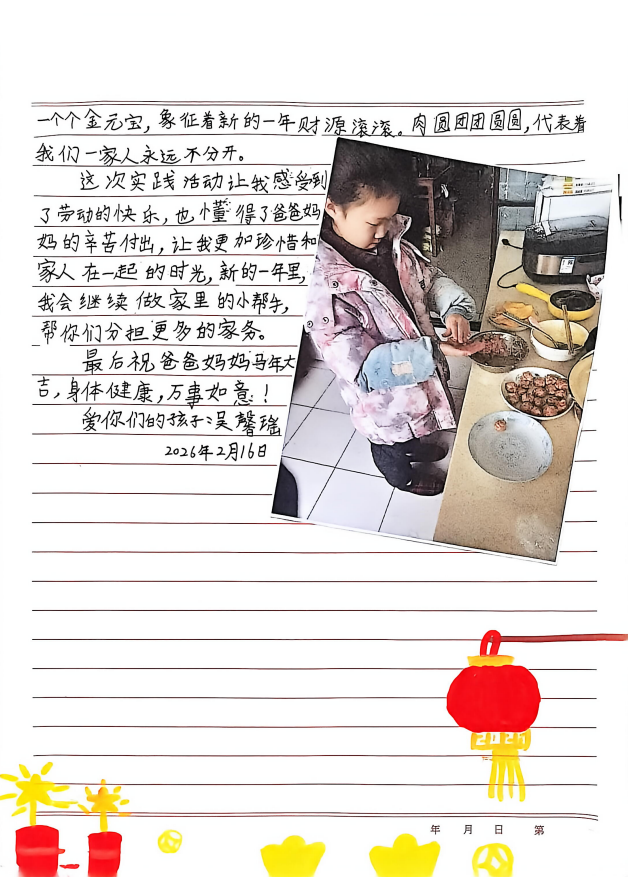 一个个金元宝，象征着新的一年财源滚滚。肉圆团团圆圆，代表着
我们一家人永远不分开。
这次实践活动让我感受到
了劳动的快乐，也懂得了爸爸妈
妈的辛苦付出，让我更加珍惜和
家人在一起的时光，新的一年里，
我会继续做家里的小帮手，
帮你们分担更多的家务。
最后祝爸爸妈妈马年大
吉，身体健康，万事如意！
爱你们的孩子：吴馨瑶
2026年2月16日
年 月 日 第